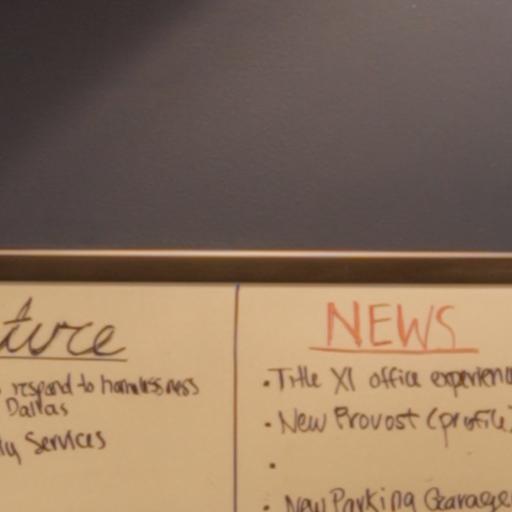 ture
respond to homelessness
Dallas
ly Services
NEWS
• Title XI office experienc
• New Provost (profile)
•
• New Parking Garage